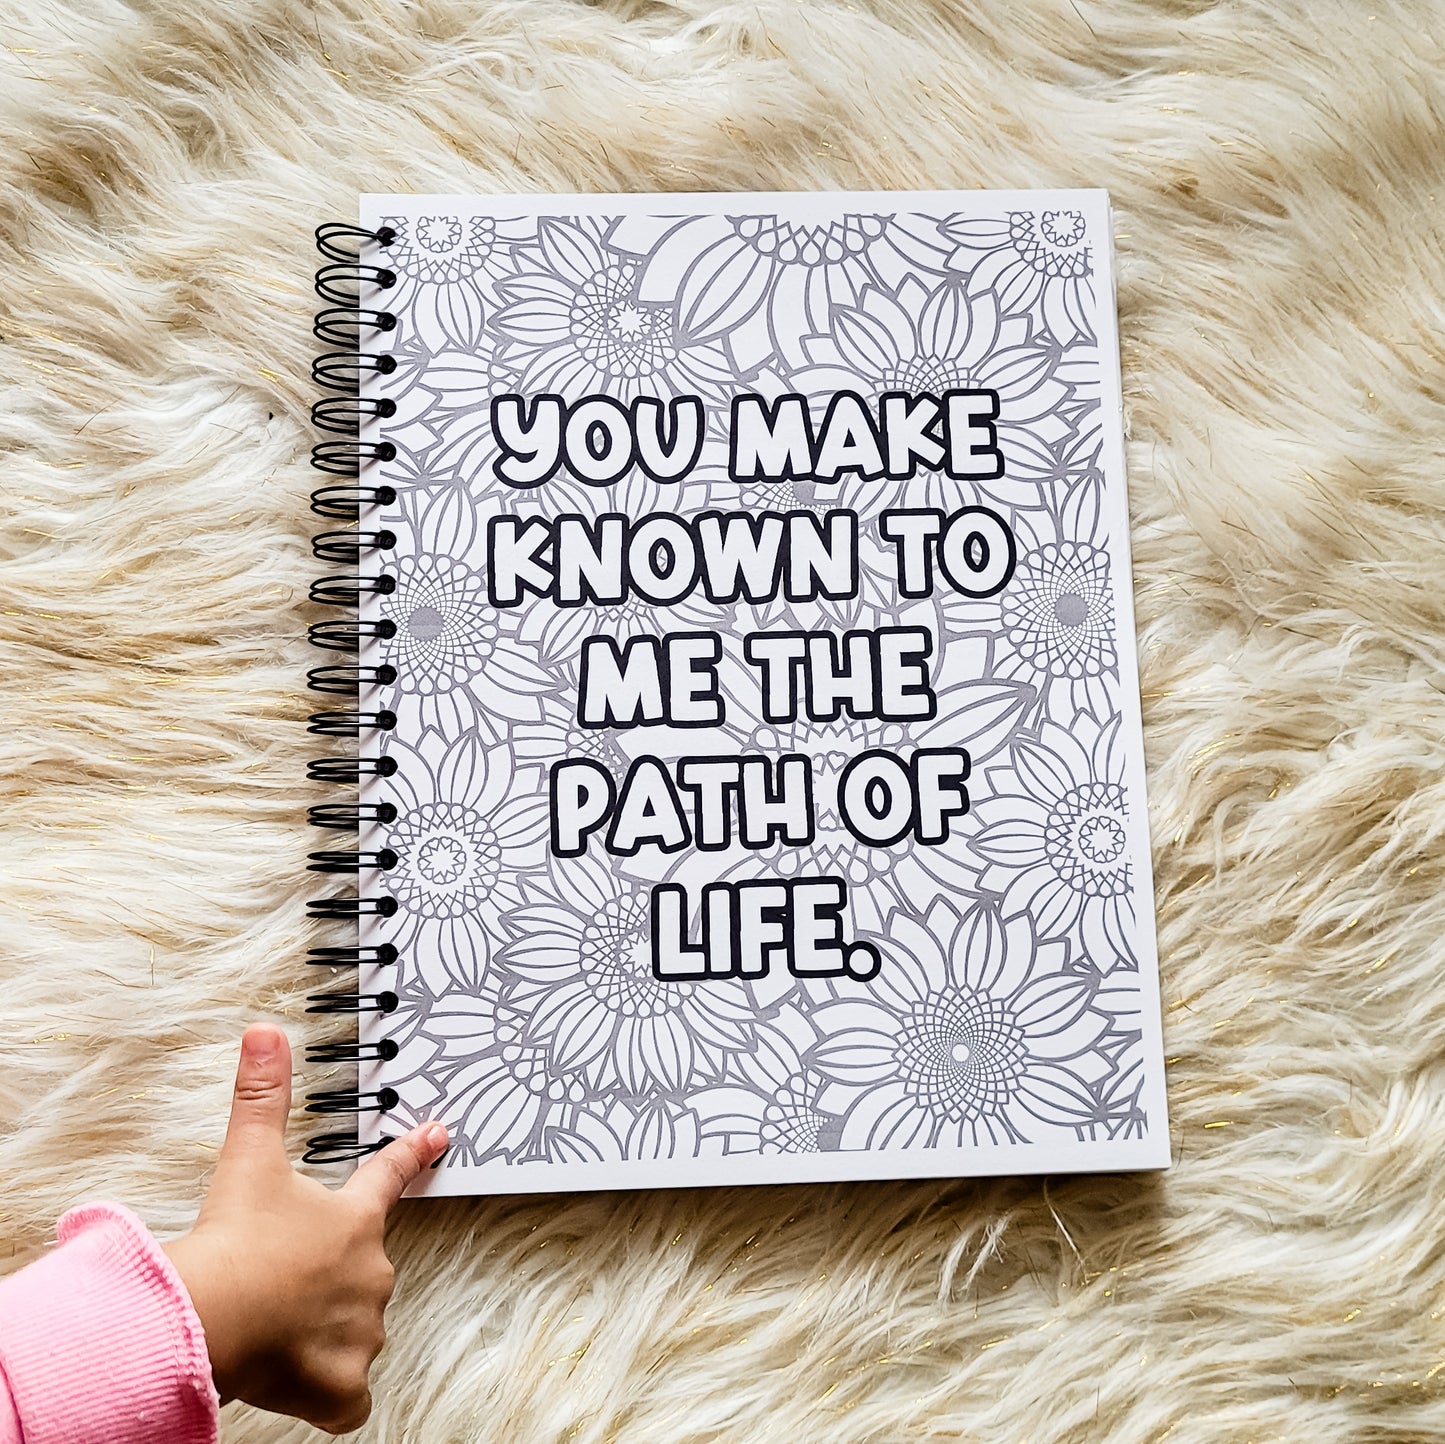 YOU MAKE
KNOWN TO
ME THE
PATH OF
LIFE.